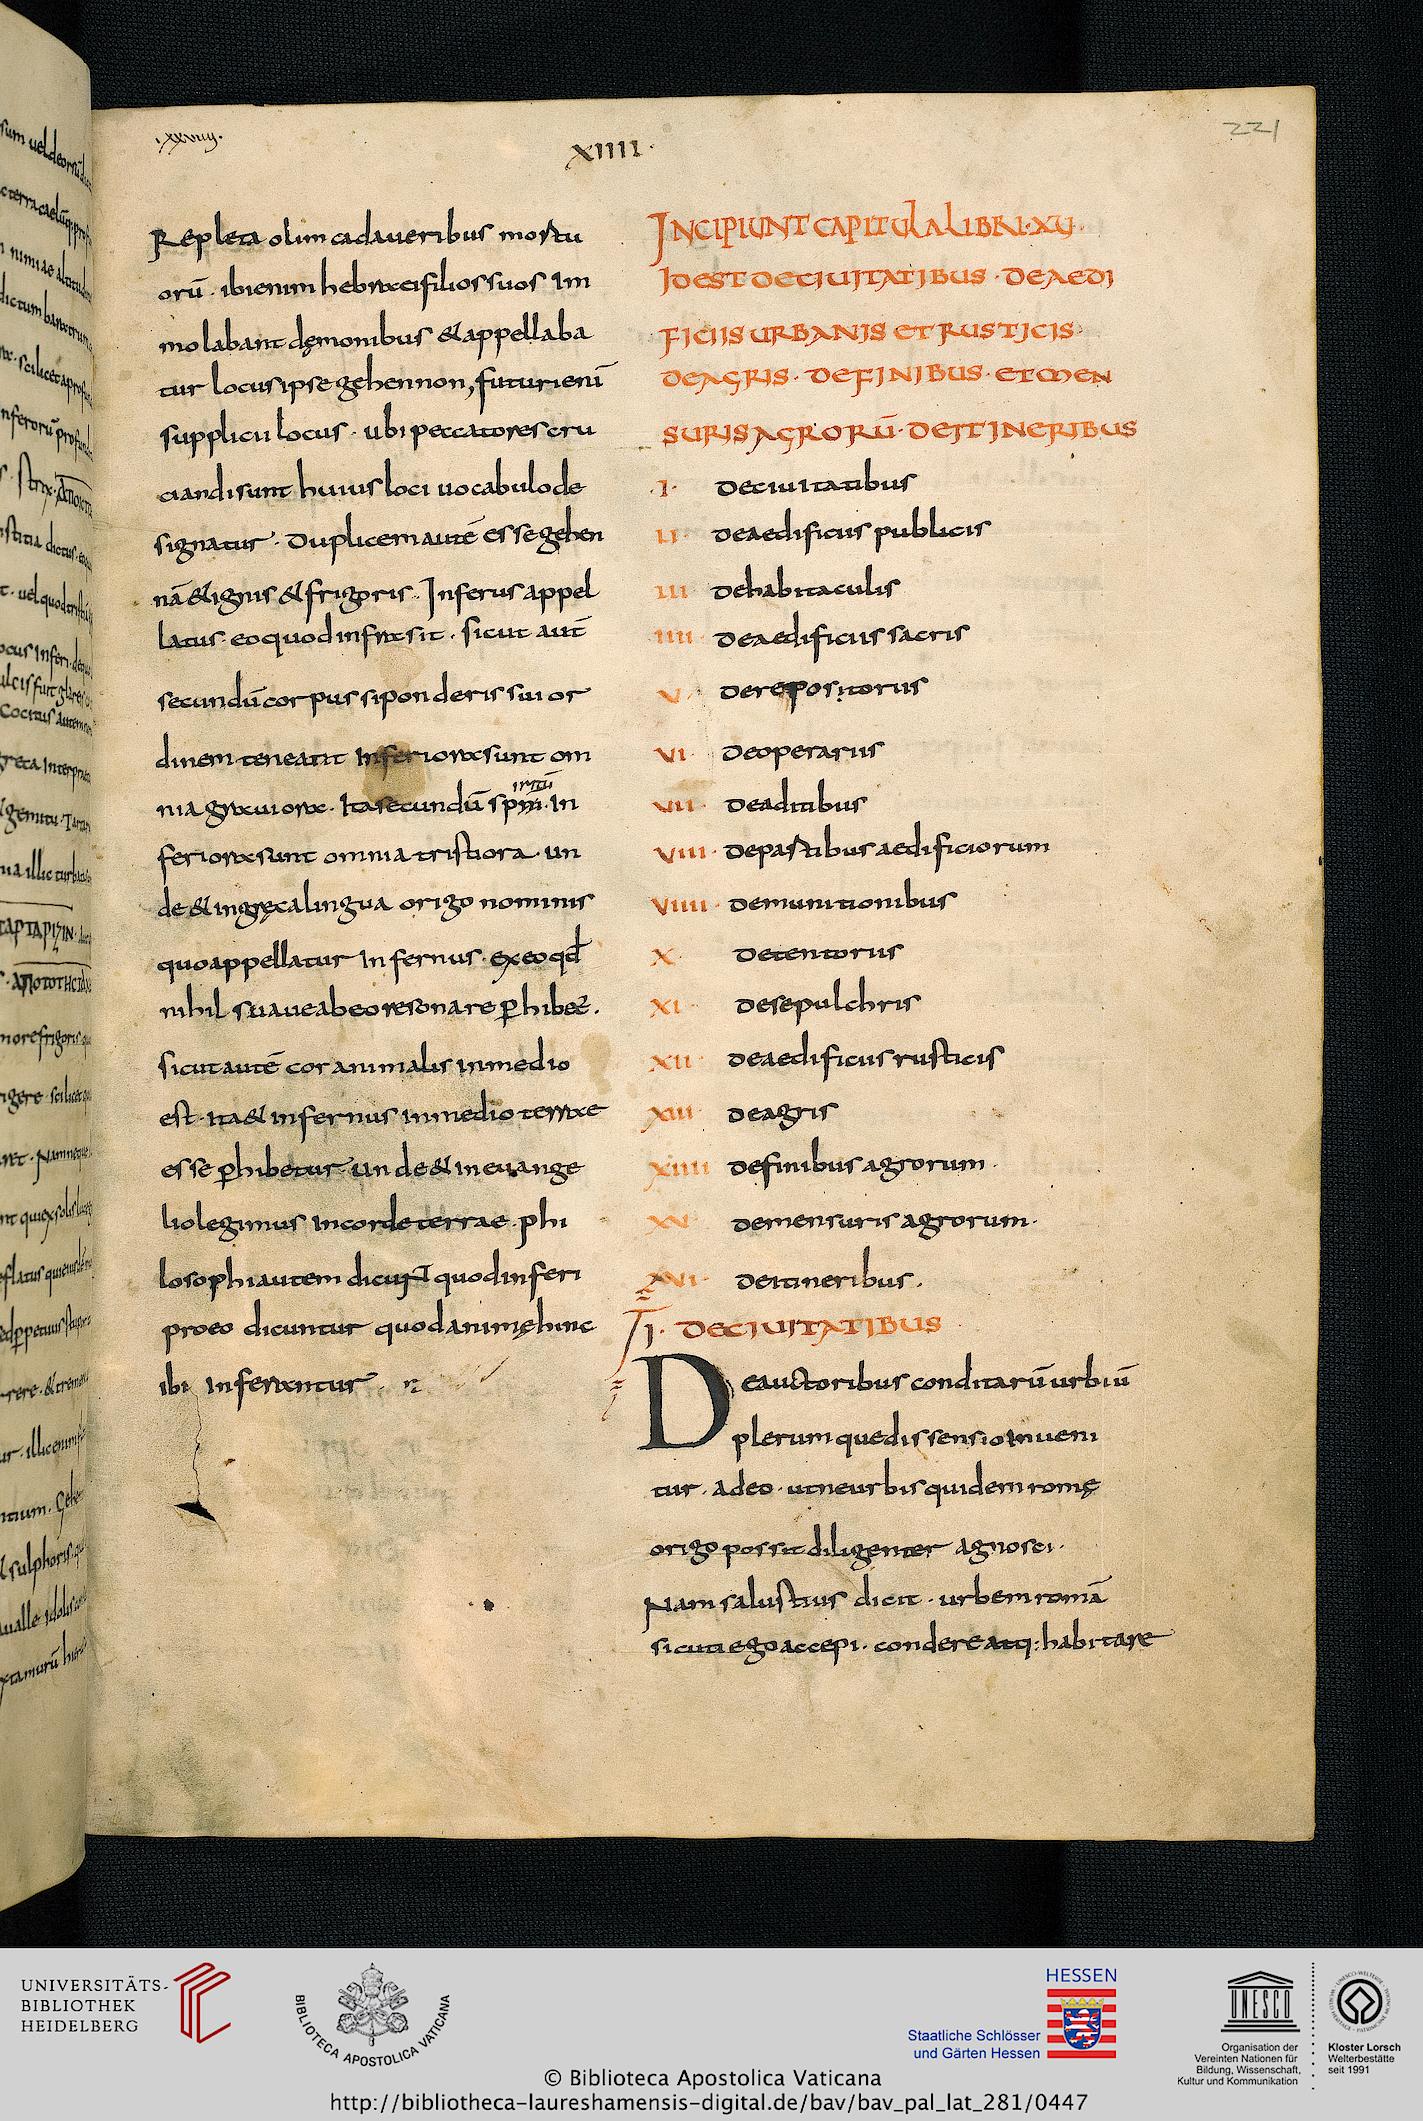 XIIII·
221
Repleta olim cadaueribus mortu
orū · ibi enim hebraei filios suos im
molabant dęmonibus & appellaba
tur locus ipse gehennon, futuri enī
supplicii locus · ubi peccatores cru
ciandi sunt huius loci uocabulo de
signatur · Duplicem autē esse gehen
nā & ignis & frigoris · Inferus appel
latus eo quod infra sit · sicut aut̄
secundū corpus si ponderis sui or
dinem teneant inferiora sunt om
nia grauiora · Ita secundū sp̄m · in
feriora sunt omnia tristiora · un
de & in gręca lingua origo nominis
quo appellatur infernus · ex eo qđ
nihil suaue ab eo resonare ꝑhibet ·
sicut autē cor animalis in medio
est · ita & infernus in medio terrae
esse ꝑhibetur unde & in euange
lio legimus in corde terrae · phi
losophi autem dicunt quod inferi
pro eo dicuntur quod animę hinc
ibi inferantur
INCIPIUNT CAPITULA LIBRI · XV ·
IDEST DE CIUITATIBUS · DE AEDI
FICIIS URBANIS ET RUSTICIS ·
DE AGRIS · DE FINIBUS · ET MEN
SURIS AGRORŪ · DE ITINERIBUS
I · De ciuitatibus
II · De aedificiis publicis
III De habitaculis
IIII De aedificiis sacris
V · De repositoriis
VI · De operariis
VII · De aditibus
VIII · De partibus aedificiorum
VIIII · De munitionibus
X · De tentoriis
XI · De sepulchris
XII · De aedificiis rusticis
XIII De agris
XIIII De finibus agrorum ·
XV De mensuris agrorum ·
XVI · De itineribus ·
I · DE CIUITATIBUS
De auctoribus conditarū urbiū
plerumque dissensio inueni
tur · adeo · ut ne urbis quidem romę
origo possit diligenter agnosci ·
Nam salustius dicit · urbem romā
sicuti ego accepi · condere atq: habitare
UNIVERSITÄTS-
BIBLIOTHEK
HEIDELBERG
BIBLIOTECA APOSTOLICA VATICANA
HESSEN
Staatliche Schlösser
und Gärten Hessen
UNESCO
Organisation der
Vereinten Nationen für
Bildung, Wissenschaft,
Kultur und Kommunikation
Kloster Lorsch
Welterbestätte
seit 1991
© Biblioteca Apostolica Vaticana
http://bibliotheca-laureshamensis-digital.de/bav/bav_pal_lat_281/0447